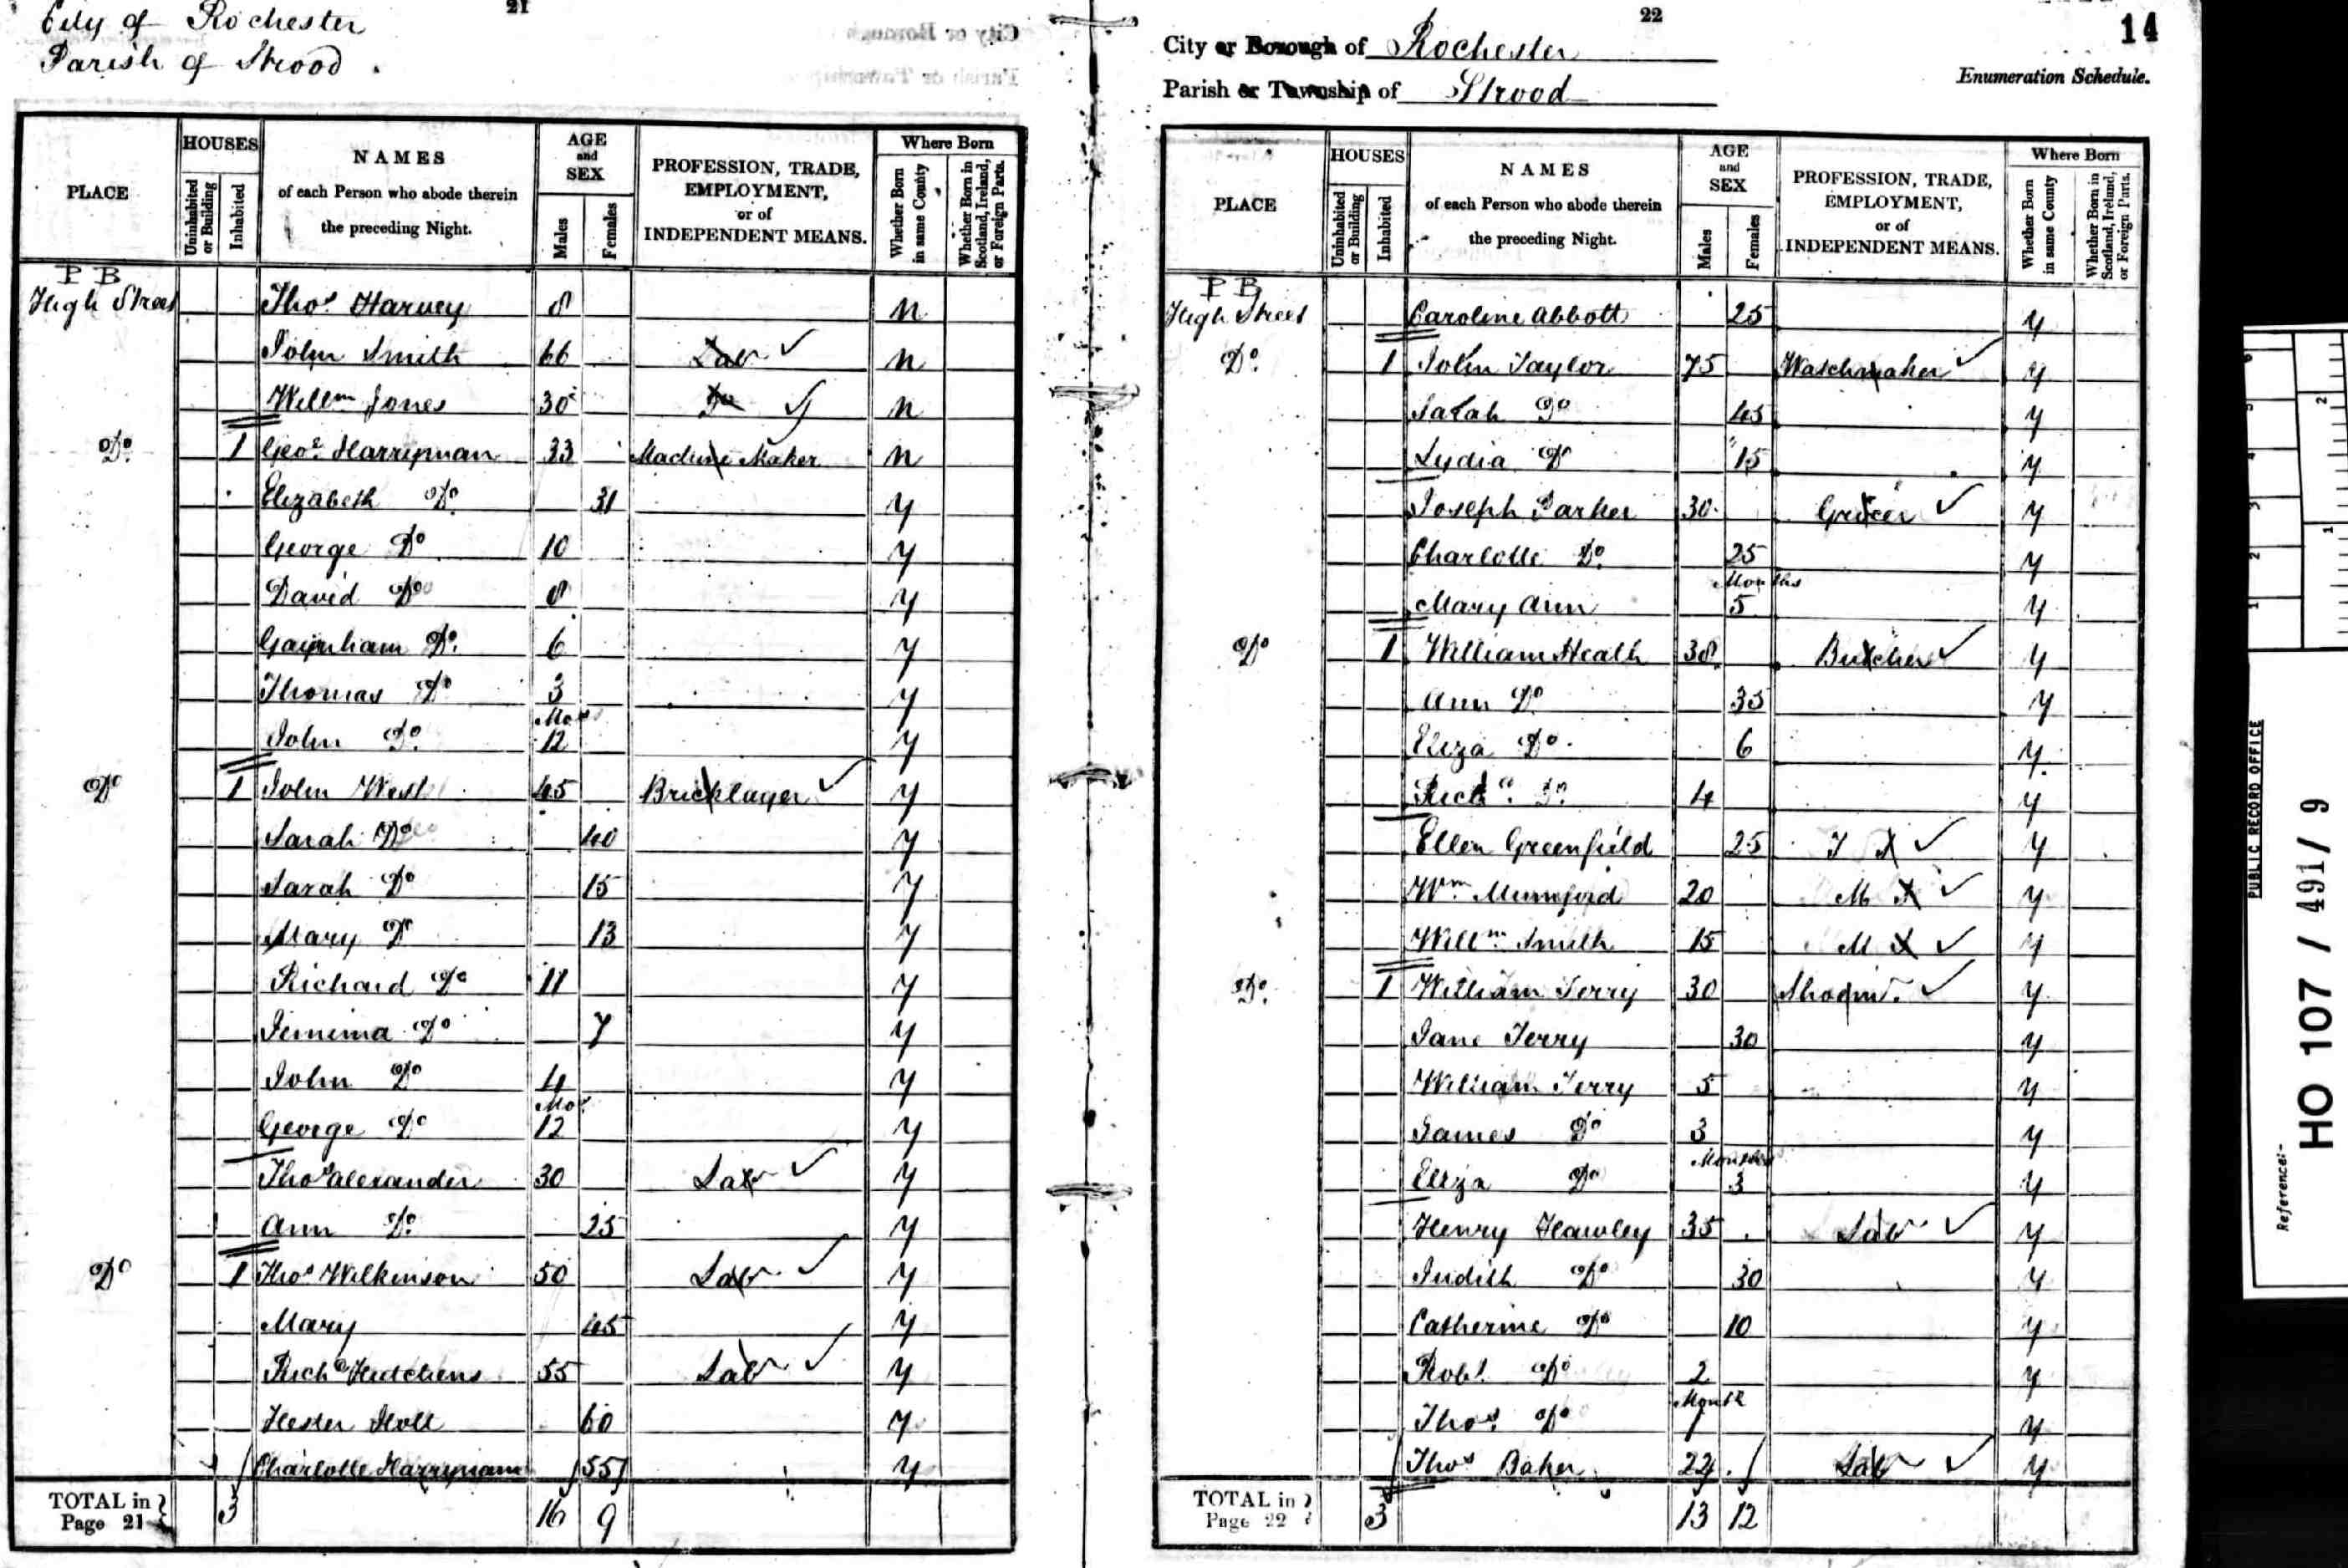 21
City of Rochester
Parish of Strood.
PLACE HOUSES Uninhabited or Building Inhabited NAMES of each Person who abode therein the preceding Night. AGE and SEX Males Females PROFESSION, TRADE, EMPLOYMENT, or of INDEPENDENT MEANS. Where Born Whether Born in same County Whether Born in Scotland, Ireland, or Foreign Parts.
P B
High Street Thos. Harvey 8 n
John Smith 66 Lab ✓ n
Willm Jones 30 Do ✓ n
Do. 1 Geoe. Harryman 33 Machine Maker n
Elizabeth Do. 31 y
George Do 10 y
David Do 8 y
Gaynham Do. 6 y
Thomas Do 3 y
John Do. Mos 12 y
Do 1 John West 45 Bricklayer ✓ y
Sarah Do 40 y
Sarah Do 15 y
Mary Do 13 y
Richard Do 11 y
Jemima Do 7 y
John Do 4 y
George Do Mos 12 y
Thos Alexander 30 Lab ✓ y
Ann Do. 25 y
Do 1 Thos Wilkinson 50 Lab ✓ y
Mary 45 y
Richd Hutchens 55 Lab ✓ y
Hester Holl 60 y
Charlotte Harryman 55 y
TOTAL in Page 21 3 16 9
22
14
City or Borough of Rochester
Parish or Township of Strood
Enumeration Schedule.
PLACE HOUSES Uninhabited or Building Inhabited NAMES of each Person who abode therein the preceding Night. AGE and SEX Males Females PROFESSION, TRADE, EMPLOYMENT, or of INDEPENDENT MEANS. Where Born Whether Born in same County Whether Born in Scotland, Ireland, or Foreign Parts.
P B
High Street Caroline Abbott 25 y
Do. 1 John Taylor 75 Watchmaker ✓ y
Sarah Do 45 y
Lydia Do 15 y
Joseph Parker 30 Grocer ✓ y
Charlotte Do. 25 y
Mary Ann Months 5 y
Do 1 William Heath 38 Butcher ✓ y
Ann Do 35 y
Eliza Do. 6 y
Richd. Do. 4 y
Ellen Greenfield 25 F S ✓ y
Wm. Mumford 20 M S ✓ y
Willm. Smith 15 M S ✓ y
Do. 1 William Terry 30 Shoem. ✓ y
Jane Terry 30 y
William Terry 5 y
James Do 3 y
Eliza Do Months 3 y
Henry Hawley 35 Lab ✓ y
Judith Do 30 y
Catherine Do 10 y
Robt. Do 2 y
Thos. Do Month 1 y
Thos Baker 22 Lab ✓ y
TOTAL in Page 22 3 13 12
PUBLIC RECORD OFFICE
Reference:-
HO 107 / 491 / 9